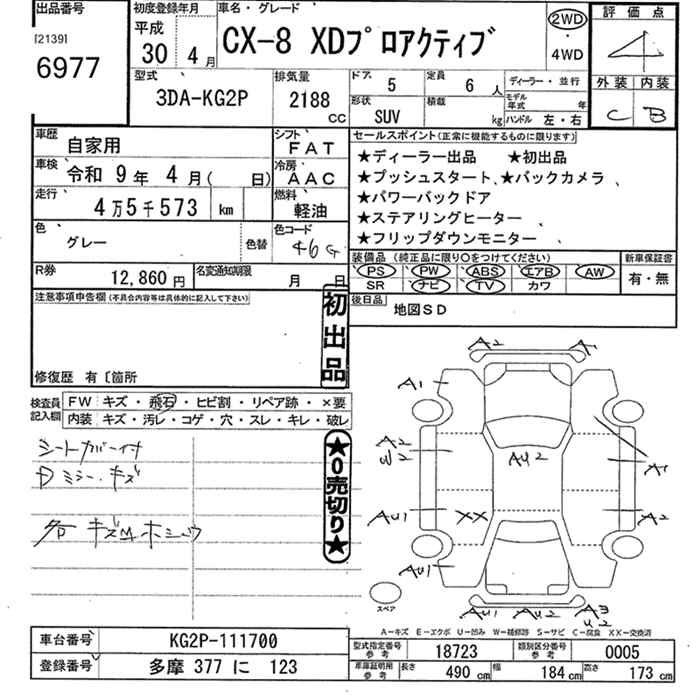 出品番号 初度登録年月 車名・グレード 評価点
[2139] 平成 CX-8 XDプロアクティブ 2WD・4WD 4
6977 30年4月 外装 内装
型式 排気量 ドア 5 定員 6人 ディーラー・並行 C B
3DA-KG2P 2188cc 形状 SUV 積載 kg モデル年式 年 ハンドル 左・右
車歴 自家用 シフト FAT セールスポイント(正常に機能するものに限ります)
車検 令和9年4月(日) 冷房 AAC ★ディーラー出品 ★初出品
走行 4万5千573 km 燃料 軽油 ★プッシュスタート、★バックカメラ、
★パワーバックドア
色 グレー 色替 色コード 46G ★ステアリングヒーター、
★フリップダウンモニター、
R券 12,860円 名変通知期限 月 日 装備品(純正品に限り○をつけてください) 新車保証書
PS PW ABS エアB AW 有・無
SR ナビ TV カワ
注意事項申告欄(不具合内容等は具体的に記入して下さい) 初出品 後日品 地図SD
修復歴 有〔箇所
検査員記入欄 FW キズ・飛石・ヒビ割・リペア跡・×要
内装 キズ・汚レ・コゲ・穴・スレ・キレ・破レ
シートカバー付
Dミラーキズ
各キズM ホシュウ
★0売切り★
A2 A1
A1
A2
W2 AU2 A1
AU1 XX A2
AU1
スペア AU1 AU2 A3
U2
A-キズ E-エクボ U-凹み W-補修跡 S-サビ C-腐食 XX-交換済
車台番号 KG2P-111700 型式指定番号 参考 18723 類別区分番号 参考 0005
登録番号 多摩 377 に 123 車庫証明用 参考 長さ 490cm 幅 184cm 高さ 173cm